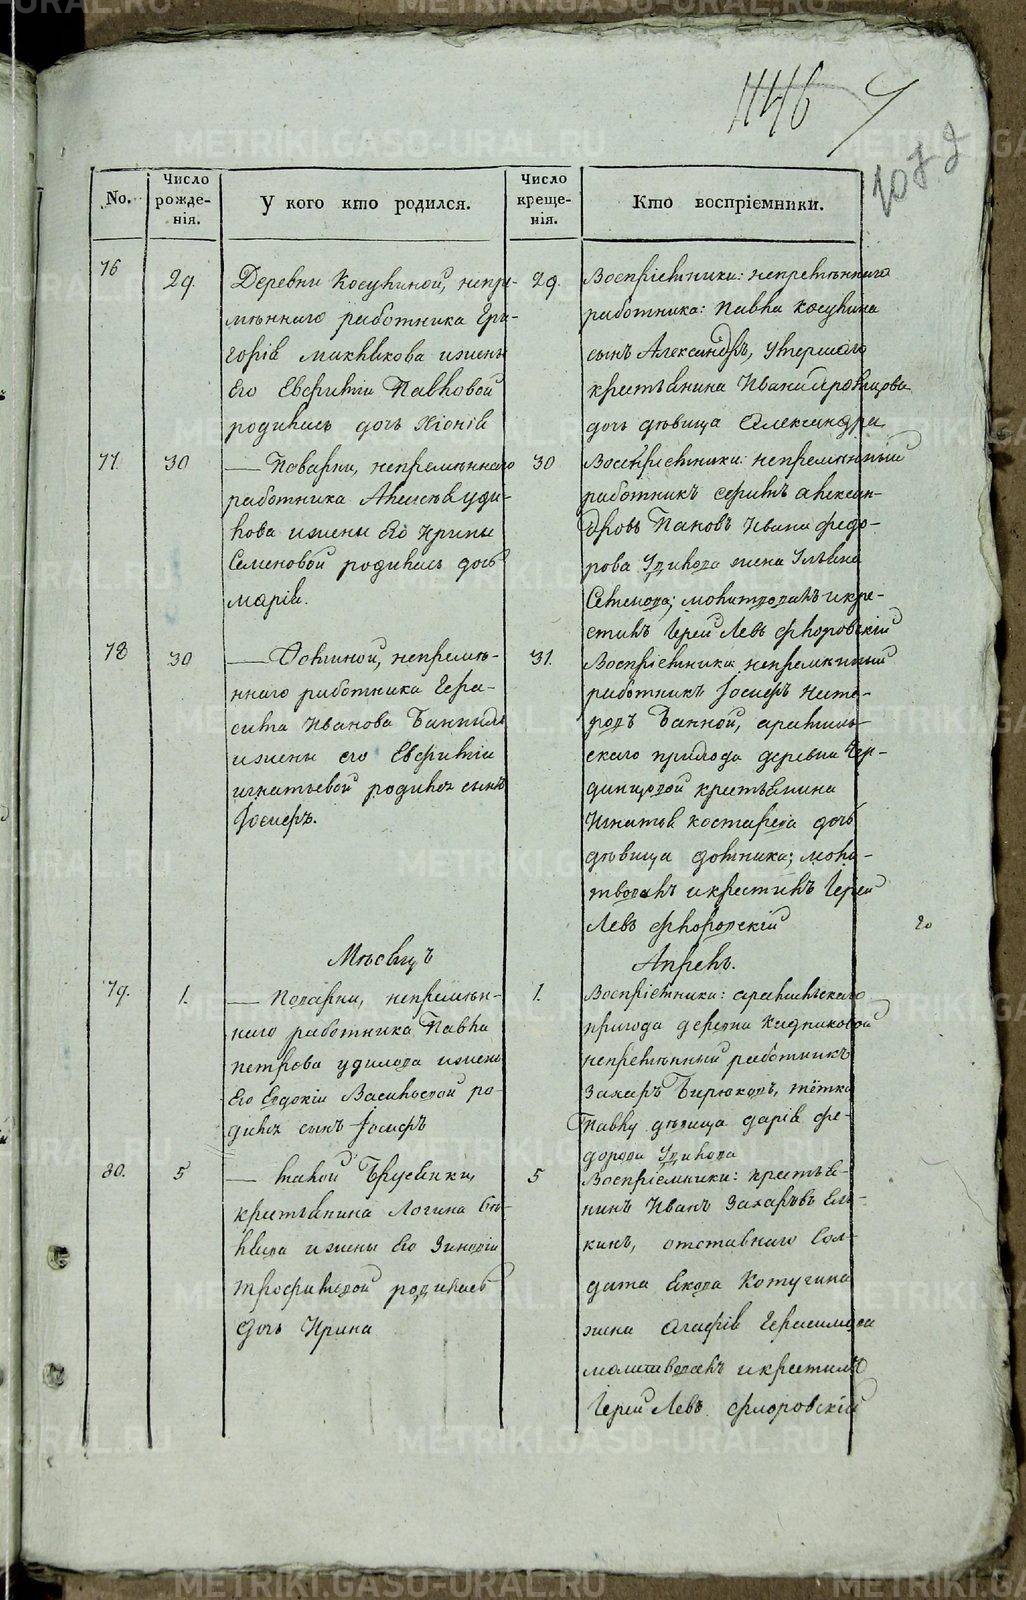 1146
107 д
No.
Число рожде-нія.
У кого кто родился.
Число креще-нія.
Кто воспріемники.
76
29.
Деревни Косулиной, непре-
мѣннаго работника Гри-
горія Маклакова и жены
его Евфиміи Павловой
родилась дочь Хіонія
29.
Воспріемники: непремѣннаго
работника: Павла Косулина
сынъ Александръ, умершаго
крестьянина Ивана
дочь дѣвица Александра
77
30
— Поварни, непремѣннаго
работника Алексѣя Уди-
лова и жены его Ирины
Семеновой родилась дочь
Марія.
30
Воспріемники: непремѣнный
работникъ Ефимъ Алексан-
дровъ Пановъ Ивана Федо-
рова Удилова жена Ульяна
Семенова; молитвовалъ и кре-
стилъ Іерей Левъ Флоровскій
78
30
непремѣ-
ннаго работника Гера-
сима Иванова
и жены его Евфиміи
Игнатьевой родился сынъ
Іосифъ.
31.
Воспріемники непремѣнный
работникъ Іосифъ
арамиль-
скаго прихода деревни
крестьянина
Игнатья Костарева дочь
дѣвица Домника; моли-
твовалъ и крестилъ Іерей
Левъ Флоровскій
20
Мѣсяцъ
Апрель.
79.
1.
— Поварни, непремѣн-
наго работника Павла
Петрова Удилова и жены
его Евдокіи Васильевой ро-
дился сынъ Іосифъ
1.
Воспріемники: арамильскаго
прихода деревни Кадниковой
непремѣнный работникъ
Захаръ Бирюковъ, тётка
Павлу дѣвица Дарія Фе-
дорова Удилова
80.
5
— малой Брусянки,
крестьянина Логина
и жены его Зиновіи
Трофимовой родилась
дочь Ирина
5
Воспріемники: крестья-
нинъ Иванъ Захаровъ Ел-
кинъ, отставнаго сол-
дата Якова Котугина
жена Агафія Герасимова
молитвовалъ и крестилъ
Іерей Левъ Флоровскій